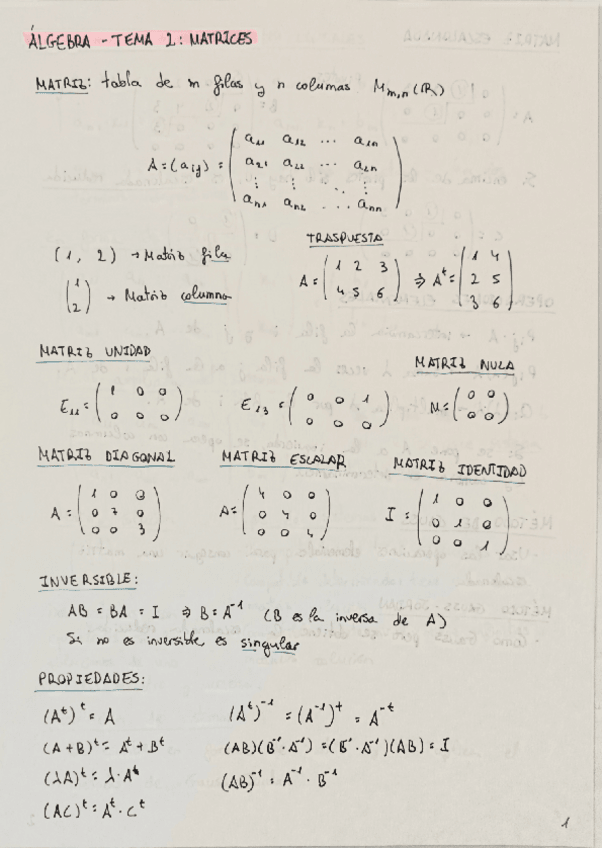 ÁLGEBRA - TEMA 2: MATRICES
MATRIZ: tabla de m filas y n columnas M m,n (R)
A = (a ij) = ( a11 a12 ... a1n
a21 a22 ... a2n
⋮ ⋮ ⋱ ⋮
an1 an2 ... ann )
(1, 2) → Matriz fila
(1
2) → Matriz columna
TRASPUESTA
A = ( 1 2 3
4 5 6 ) ⇒ A^t = ( 1 4
2 5
3 6 )
MATRIZ UNIDAD
E11 = ( 1 0 0
0 0 0 )
E13 = ( 0 0 1
0 0 0 )
MATRIZ NULA
N = ( 0 0
0 0 )
MATRIZ DIAGONAL
A = ( 1 0 0
0 7 0
0 0 3 )
MATRIZ ESCALAR
A = ( 4 0 0
0 4 0
0 0 4 )
MATRIZ IDENTIDAD
I = ( 1 0 0
0 1 0
0 0 1 )
INVERSIBLE:
AB = BA = I ⇒ B = A^-1 (B es la inversa de A)
Si no es inversible es singular
PROPIEDADES:
(A^t)^t = A
(A+B)^t = A^t + B^t
(λA)^t = λ · A^t
(AC)^t = A^t · C^t
(A^t)^-1 = (A^-1)^t = A^-t
(AB)(B^-1 · A^-1) = (B^-1 · A^-1)(AB) = I
(AB)^-1 = A^-1 · B^-1
1